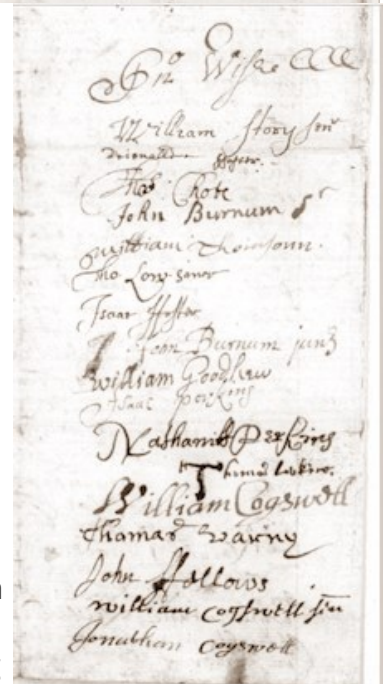 Jnº Wise
William Story senr
Reienalld Foster
Thos. Chote
John Burnum Sr
William Thomsonn.
Tho Low senr
Isaac ffoster
John Burnum junr
William Goodhew
Isaac perkins
Nathaniel Perkins
Thomas Lovkine
William Cogswell
Thomas Varny
John ffellows
william cogswell sen
Jonathan cogswell